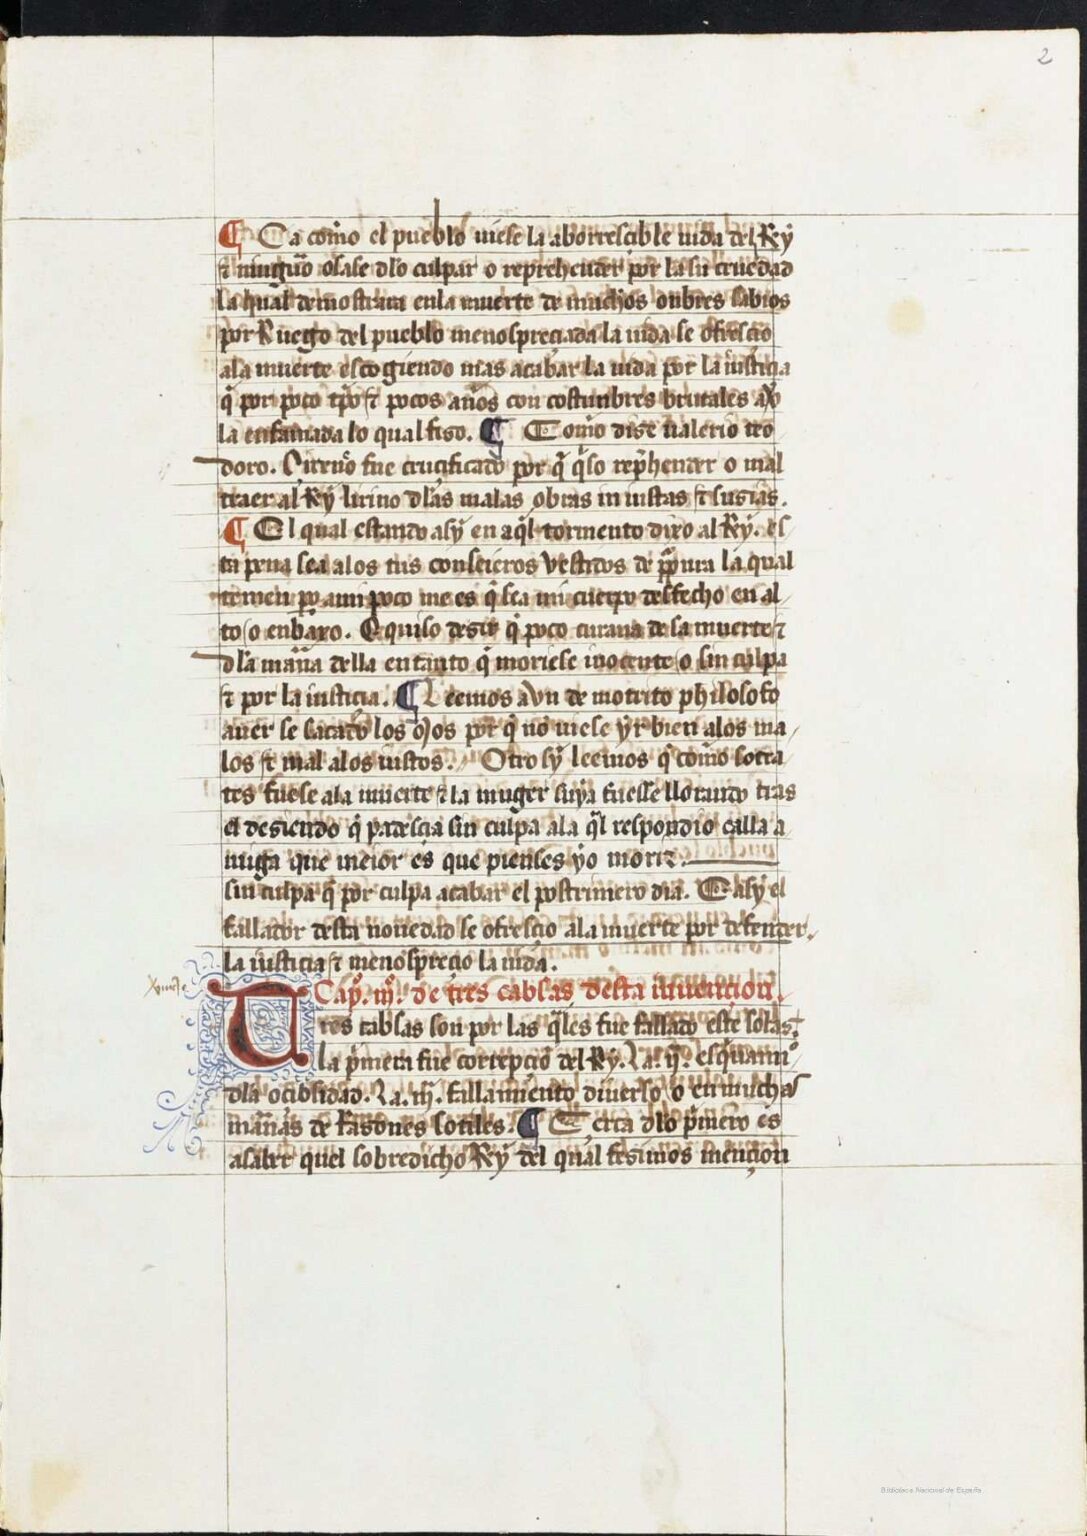 2
¶ Ca com̃o el pueblo uiese la aborrescible uida del Rey
⁊ ninguño osase dl̃o culpar o reprehender por la su crueldad
la qual demostraua enla muerte de muchos onbres sabios
por Ruego del pueblo menospreciada la uida se ofrescio
ala muerte escogiendo mas acabar la uida por la iusticia
q̃ por poco tp̃o ⁊ pocos años con costunbres brutales
la enfamada lo qual fiso. ¶ Com̃o dise ualerio teo
doro. Cireño fue crucificado por q̃ q̃so rep̃hender o mal
traer al Rey lirino dl̃as malas obras in iustas ⁊ susias.
¶ El qual estando asy en aq̃l tormento dixo al Rey. es
ta pena sea alos tus conseieros vestidos de pur̃pura la qual
temen po ami poco me es q̃ sea mi cuerpo desfecho en al
to o enbaxo. E quiso desir q̃ poco curaua de la muerte ⁊
dl̃a mañ̃a della en tanto q̃ moriese inocente o sin culpa
⁊ por la iusticia. ¶ Leemos a vn de mocrito philosofo
auer se sacado los ojos por q̃ no uiese yr bien alos ma
los ⁊ mal alos iustos. Otro sy leemos q̃ com̃o socra
tes fuese ala muerte ⁊ la muger suya fuesse llorando tras
el desiendo q̃ padescia sin culpa ala q̃l respondio calla a
miga que meior es que pienses yo morir
sin culpa q̃ por culpa acabar el postrimero dia. E asy el
fallador desta nouedad se ofrescio ala muerte por defender
la iusticia ⁊ menosprecio la uida.
Cap̃o. iij̃o. de tres cabsas desta inuencion.
Tres cabsas son por las q̃les fue fallado este solas.
la p̃mera fue correpcio del Rey. La. ij̃. esquami͠o
dl̃a ociosidad. La. iij̃. fallamiento diuerso o en muchas
mañ̃as de rasones sotiles. ¶ Cerca dl̃o p̃mero es
asaber quel sobredicho Rey del qual fesimos mencion
Biblioteca Nacional de España